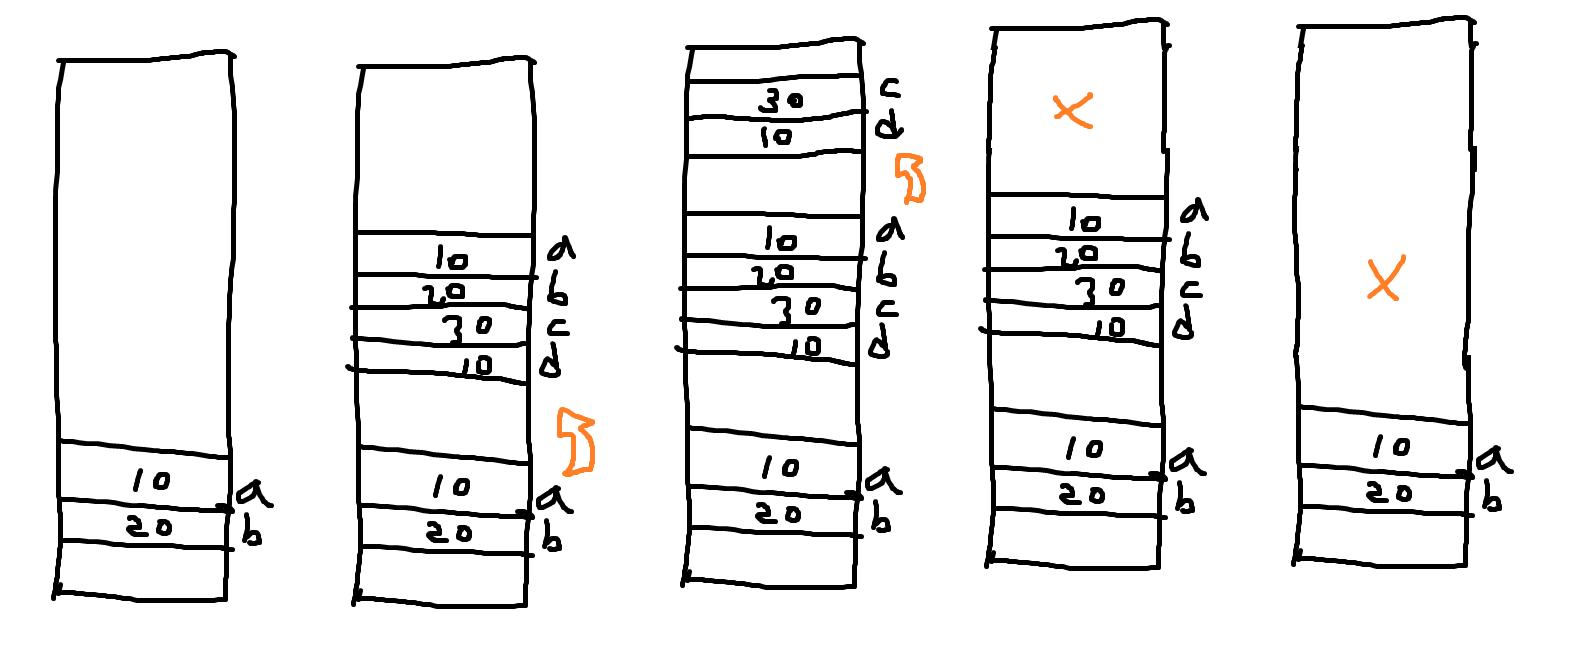 10 a
20 b
10 a
20 b
30 c
10 d
10 a
20 b
30 c
10 d
10 a
20 b
30 c
10 d
10 a
20 b
10 a
20 b
30 c
10 d
10 a
20 b
10 a
20 b